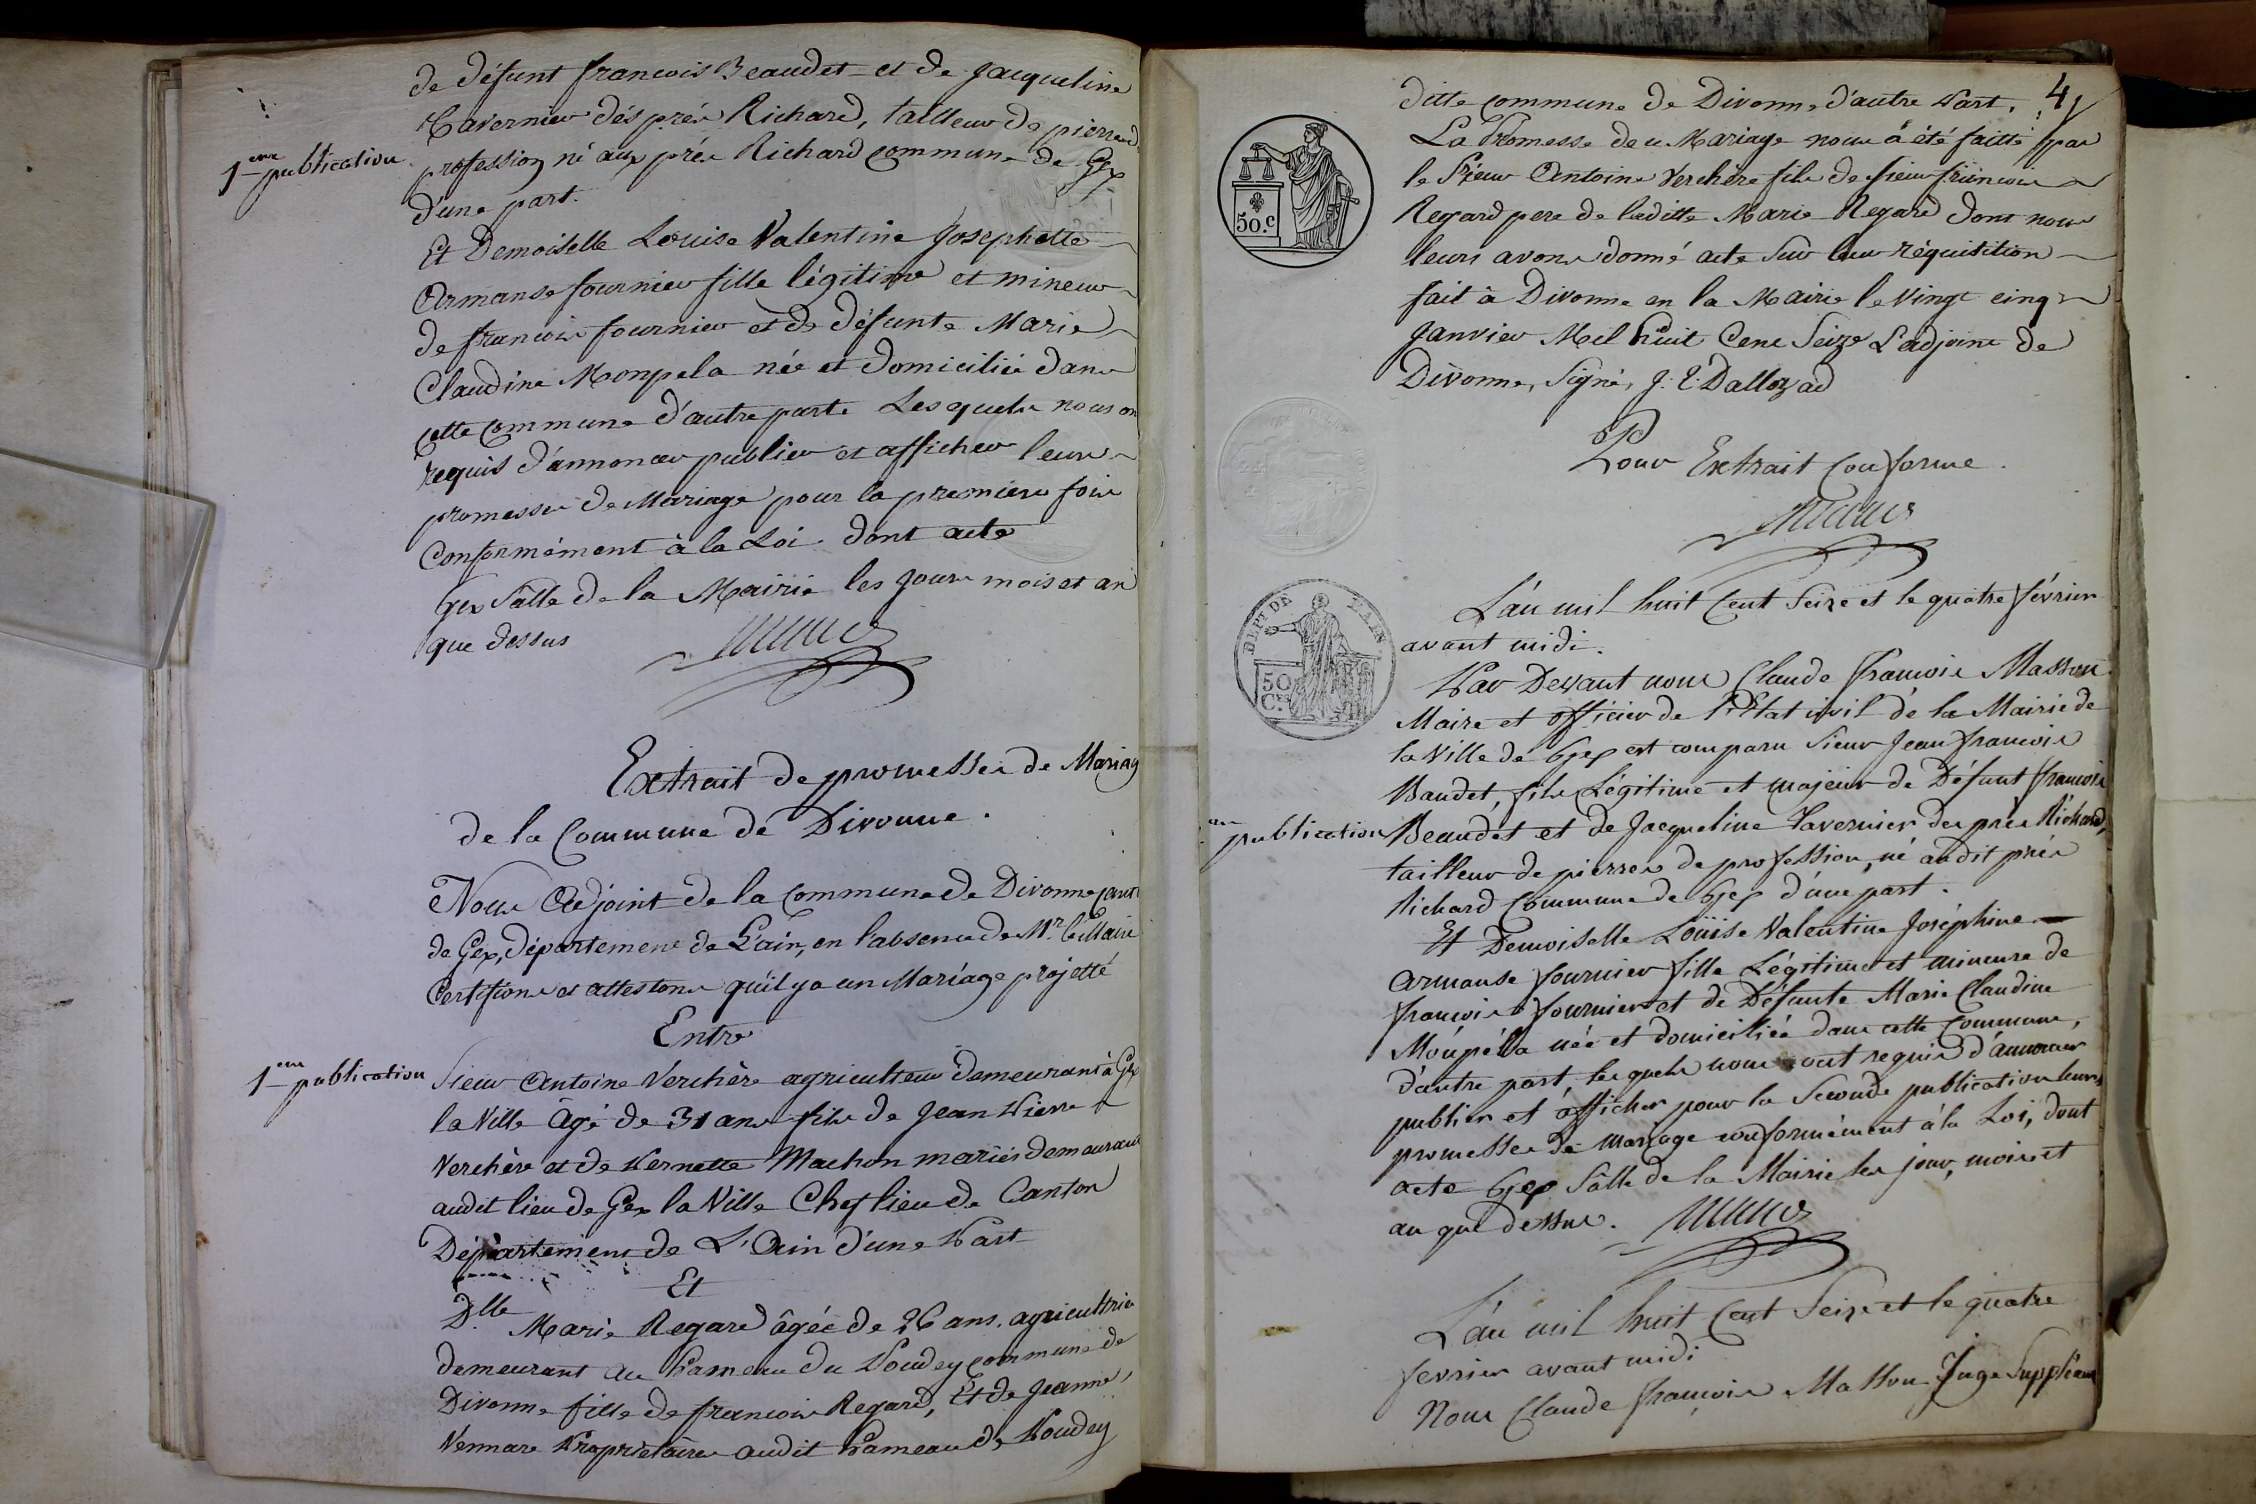 de défunt francois Beaudet et de Jacqueline
Tavernier dés prés Richard, tailleur de pierre de
1ere publication
profession né aux prés Richard commune de Gex
d'une part.
Et Demoiselle Louise Valentine Josephette
Armanse fournier fille légitime et mineur
de francois fournier et de défunte Marie
Claudine Monpela née et domiciliée dans
cette Commune d'autre parte Lesquels nous on
requis d'annoncer publier et afficher leurs
promesses de Mariage pour la premiere fois
Conformément à la Loi. dont acte
Gex Salle de la Mairie les Jours mois et an
que dessus
Extrait de promesses de Mariag
de la Commune de Divonne.
Nous Adjoint de la Commune de Divonne canton
de Gex, département de L'ain, en l'absence de Mr. le Maire
Certifions et attestons qu'il y a un Mariage projetté
Entre
1ere publication
Sieur Antoine Verchère agriculteur demeurant à Gex
la Ville âgé de 31 ans fils de Jean Pierre
Verchère et de Pernette Machon mariés demeurans
audit lieu de Gex la Ville Chef lieu de Canton
Département de L'Ain d'une Part
Et
Dlle Marie Regard âgée de 26 ans. agricultrice
demeurant au hameau du Poudey commune de
Divonne fille de francois Regard, Et de Jeanne
Vennare Propriétaires audit hameau de Poudey
4
ditte commune de Divonne d'autre Part.
La Promesse de ce Mariage nous à été faitte par
le Sieur Antoine Verchère fils de sieur françois
Regard pere de laditte Marie Regard dont nous
leurs avons donné acte Sur leur réquisition
fait à Divonne en la Mairie le Vingt cinq
Janvier Mil huit Cent Seize L'adjoint de
Divonne, Signé, J. E. Dallozad
50.c
Pour Extrait Conforme.
L'an mil huit Cent Seize et le quatre février
avant midi.
DEPT. DE L'AIN
50
Cs.
Par Devant nous Claude françois Masson
Maire et officier de l'Etat civil de la Mairie de
la Ville de Gex est comparu Sieur Jean francois
Baudet, fils Légitime et majeur de Défunt francois
publication
Beaudet et de Jacqueline Tavernier des prés Richard,
tailleur de pierres de profession, né audit prés
Richard Commune de Gex d'une part.
Et Demoiselle Louise Valentine Joséphine
Armanse fournier fille Légitime et mineure de
françois fournier et de Défunte Marie Claudine
Monpéla née et domiciliée dans cette Commune,
d'autre part, lesquels nous ont requis d'annoncer
publier et afficher pour la Seconde publication leurs
promesses de mariage conformément à la Loi, dont
acte Gex Salle de la Mairie les jour, mois et
an que dessus.
L'an mil huit Cent Seize et le quatre
fevrier avant midi
Nous Claude françois Masson Juge Suppléant